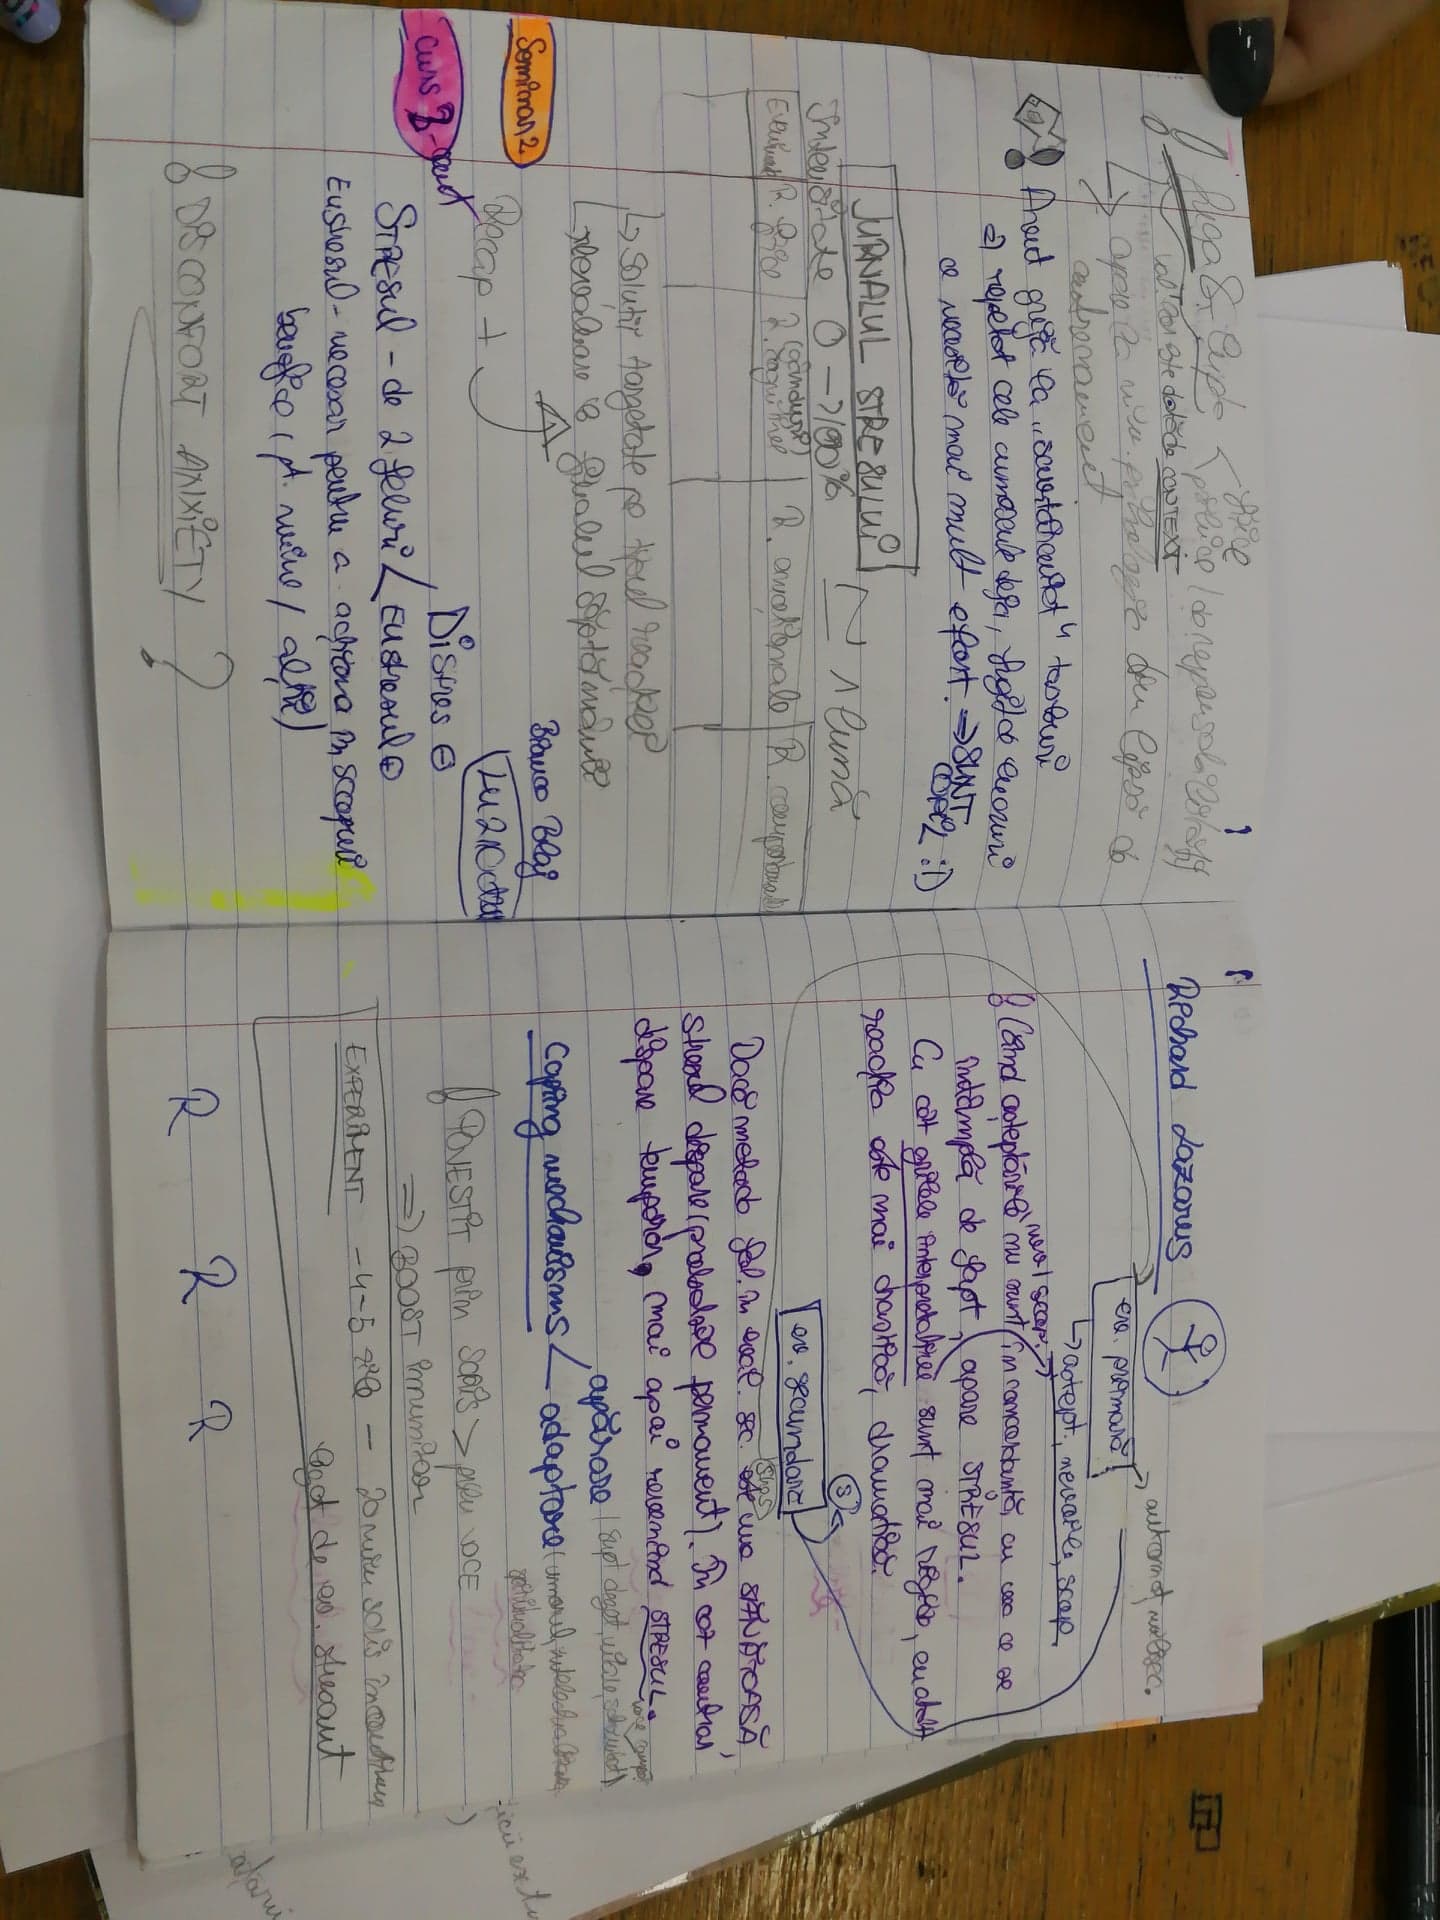 ! fuga & lupta < fizice
psihice (de responsabilități)
val. lor este dată de CONTEXT
apare la niv. psihologic din lipsă de
antrenament.
! Avut grijă la
⇒ repetat cele cunoscute deja, fugit de lucruri
ce necesită mai mult efort. ⇒ SUNT
COPIL :D
JURNALUL STRESULUI
Intensitate 0 → 100% ≃ 1 lună
Eveniment R. fizice R. (gânduri) cognitive R. emoționale R. comportament
↳ soluții targetate pe tipul reacției
reevaluare la finalul săptămânii
Seminar 2
Recap +
Bianca Blaj
Curs 3
STRESUL - de 2 feluri < Distres ⊖
Eustresul ⊕
Eustresul - necesar pentru a acționa în scopuri
benefice (pt. mine / alții)
! DISCONFORT ANXIETY ?
Richard Lazarus
ev. primară → automat, milisec.
↳ aștept., nevoile, scop
nevoi scop.
! Când așteptările nu sunt în concordanță cu ceea ce se
întâmplă de fapt, apare STRESUL.
Cu cât grilele interpretative sunt mai rigide, cu atât
reacția este mai drastică, dramatică.
S
ev. secundară
stres
Dacă metoda fol. în eval. sec. este una SĂNĂTOASĂ,
stresul dispare (probabil permanent). În caz contrar
dispare temporar, mai apoi revenind STRESUL.
Coping mechanisms < apărare (supt deget, uitare,
adaptare (umorul, intelectualizarea,
spiritualitatea
! POVESTIT prin SCRIS > prin VOCE
⇒ BOOST imunitar
EXPERIMENT - 4-5 zile - 20 min scris încontinuu
legat de ev. stresant
R R R